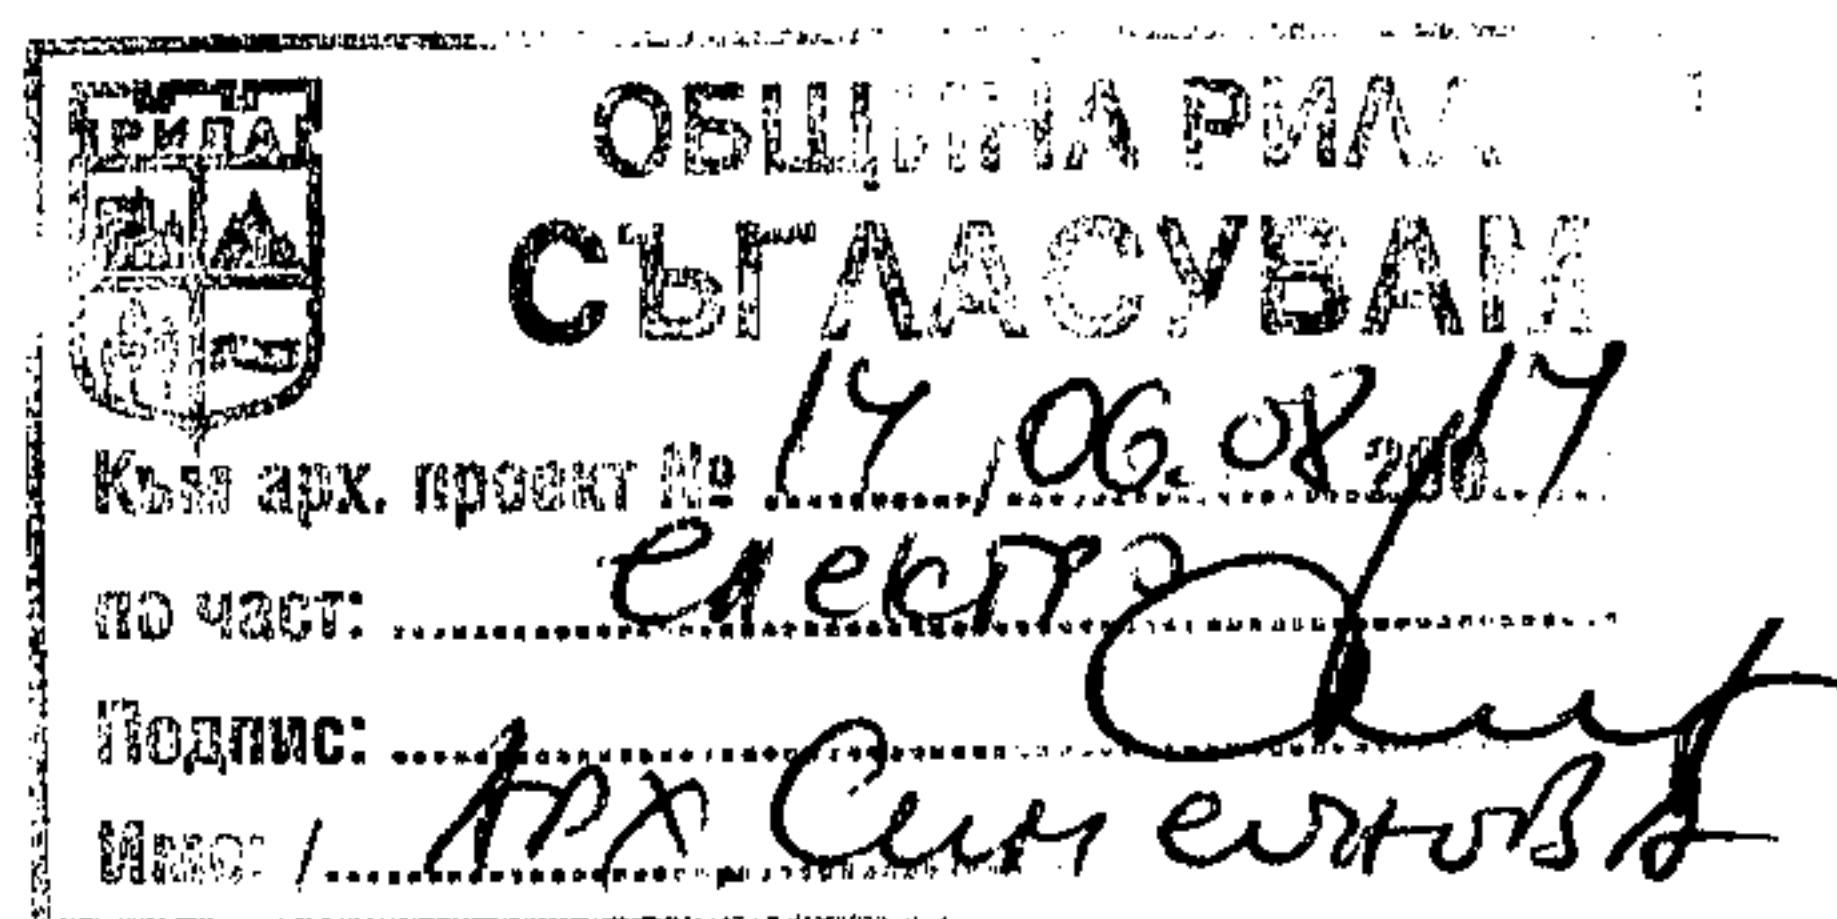 РИЛА
ОБЩИНА РИЛА
СЪГЛАСУВАМ
Към арх. проект № 14 / 06.08.2017
по част: електро
Подпис:
Име: / Арх Симеонова